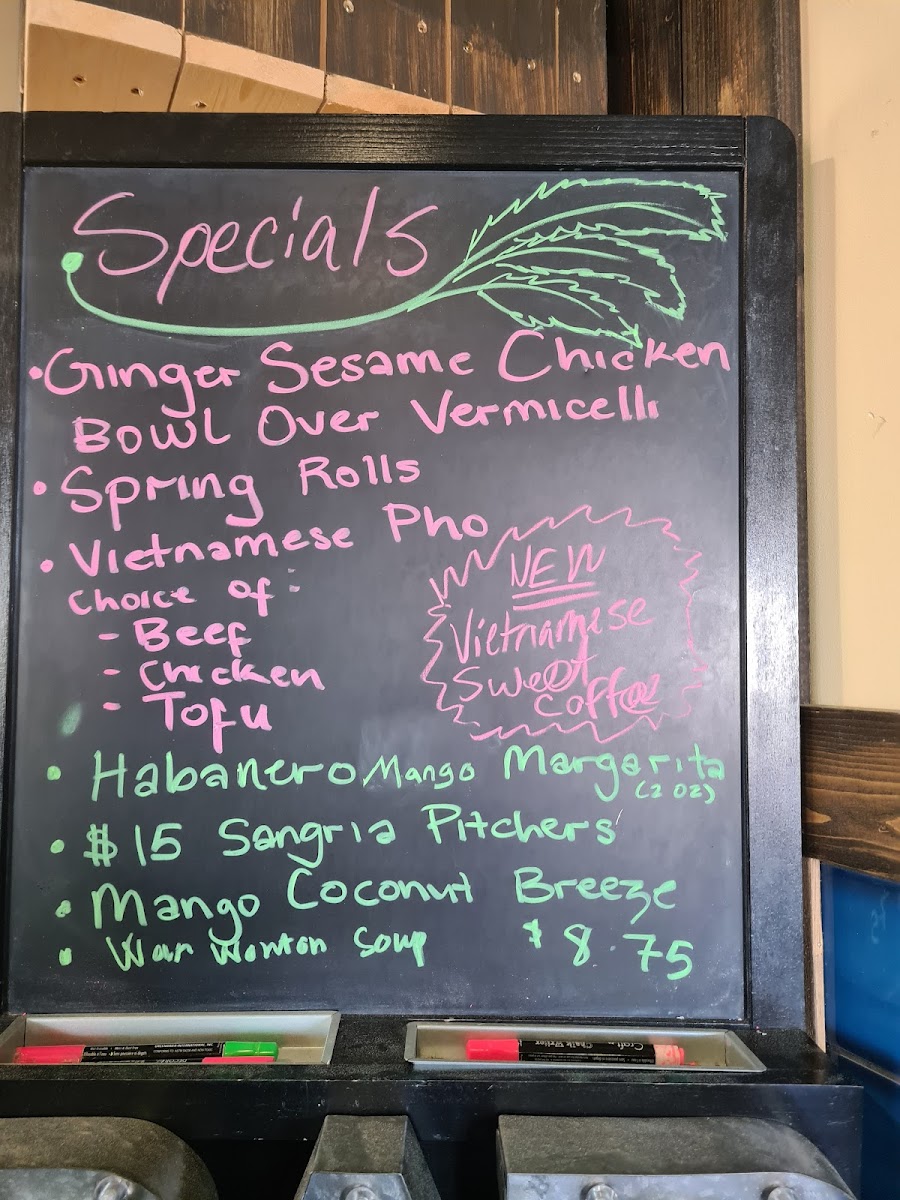 Specials
• Ginger Sesame Chicken
Bowl Over Vermicelli
• Spring Rolls
• Vietnamese Pho
Choice of:
- Beef
- Chicken
- Tofu
NEW
Vietnamese
Sweet
Coffee
• Habanero Mango Margarita
(2 oz)
• $15 Sangria Pitchers
• Mango Coconut Breeze
• War Wonton Soup $8.75
Craft Chalk Writer